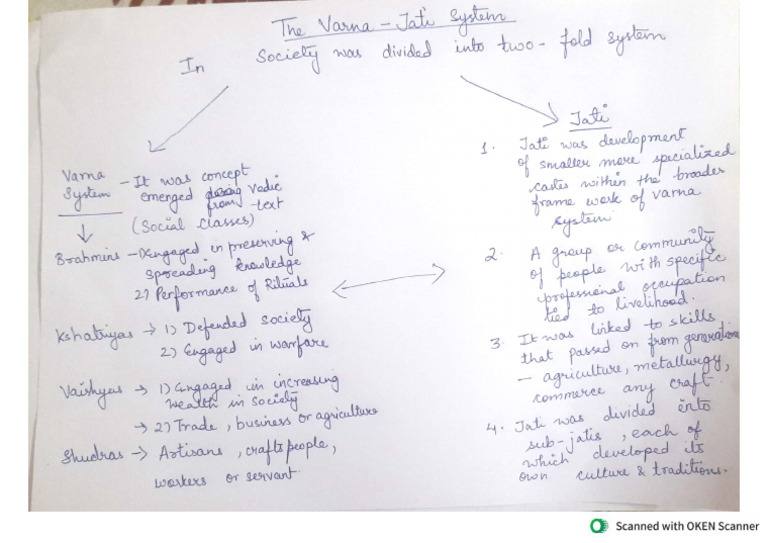 The Varna - Jati System
In Society was divided into two-fold system
Varna System - It was concept
emerged from vedic
text
(Social classes)
Brahmins - 1) Engaged in preserving &
spreading knowledge
2) Performance of Rituals
Kshatriyas → 1) Defended society
2) Engaged in warfare
Vaishyas → 1) Engaged in increasing
wealth in society
→ 2) Trade, business or agriculture
Shudras → Artisans, craftspeople,
workers or servant.
Jati
1. Jati was development
of smaller more specialized
castes within the broader
frame work of varna
system.
2. A group or community
of people with specific
professional occupation
tied to livelihood.
3. It was linked to skills
that passed on from generation
- agriculture, metallurgy,
commerce any craft.
4. Jati was divided into
sub-jatis, each of
which developed its
own culture & traditions.
Scanned with OKEN Scanner